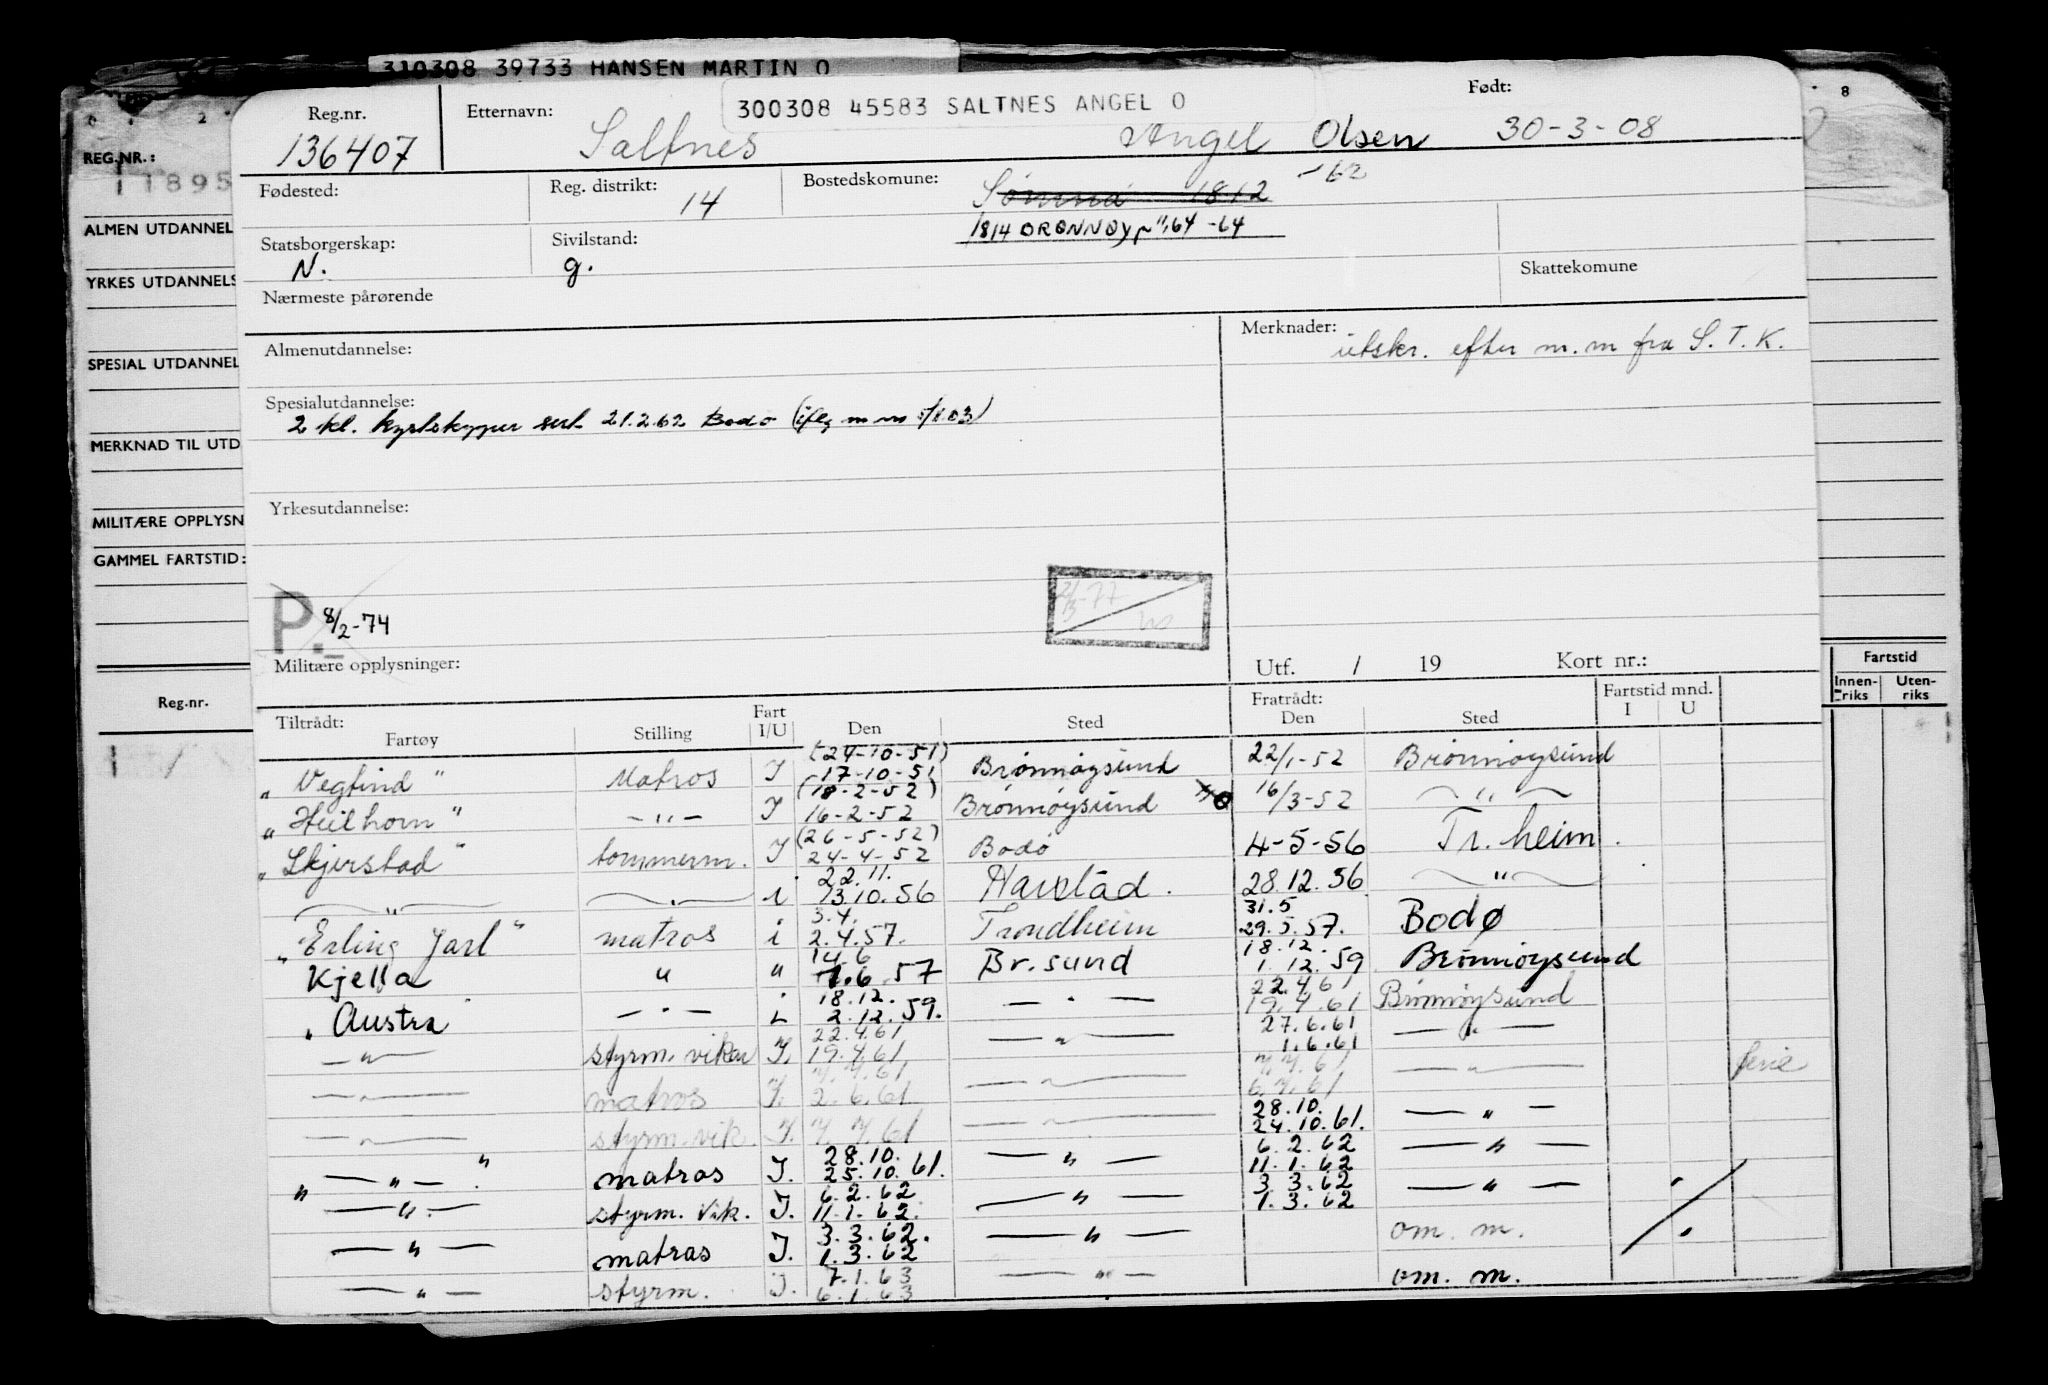 310308 39733 HANSEN MARTIN O
300308 45583 SALTNES ANGEL O
Reg.nr. Etternavn: Født:
136407 Saltnes Angel Olsen 30-3-08
Fødested: Reg. distrikt: 14 Bostedskomune: Sømna 1812 -62
1814 BRØNNØY 64 -64
Statsborgerskap: N. Sivilstand: g.
Skattekomune
Nærmeste pårørende
Almenutdannelse:
Merknader: utskr. efter m.m fra S. T. K.
Spesialutdannelse:
2 kl. kystskipper sert 21.2.62 Bodø
Yrkesutdannelse:
P. 8/2-74
Militære opplysninger:
Utf. / 19 Kort nr.:
Tiltrådt: Fart Fratrådt: Fartstid mnd.
Fartøy Stilling I/U Den Sted Den Sted I U
(24-10-51)
„ Vegtind " Matros I 17-10-51 Brønnøysund 22/1-52 Brønnøysund
(18-2-52)
„ Heilhorn " — „ — I 16-2-52 Brønnøysund 16/3-52 — „ —
(26-5-52)
„ Skjerstad " tømmerm. I 24-4-52 Bodø 4-5-56 Tr. heim
22.11.
— „ — — „ — i 13.10.56 Harstad. 28.12.56 — „ —
3.4. 31.5
„ Erling Jarl " matros i 2.4.57. Trondheim 29.5.57. Bodø
14.6 18.12.
Kjella " " 1.6.57 Br.sund 1.12.59 Brønnøysund
18.12. 22.4.61
„ Austra — " — i 2.12.59. — " — 19.4.61 Brønnøysund
22.4.61 27.6.61
— " — styrm. vikar I. 19.4.61 — " — 1.6.61 — " —
7.7.61 7.7.61
— " — matros I. 2.6.61 — " — 6.7.61 — " — ferie
28.10.
— " — styrm. vik. I. 7.7.61 — " — 24.10.61. — " —
28.10. 6.2.62
„ — " — " matros I. 25.10.61. — " — 11.1.62 — " —
6.2.62 3.3.62
— " — styrm. Vik. I. 11.1.62. — " — 1.3.62 — " —
3.3.62.
— " — matros I. 1.3.62 — " — om. m.
7.1.63
— " — styrm. I. 6.1.63 — " — om. m.
REG.NR.:
1895
ALMEN UTDANNEL
YRKES UTDANNELS
SPESIAL UTDANNEL
MERKNAD TIL UTD
MILITÆRE OPPLYSN
GAMMEL FARTSTID:
Reg.nr.
Fartstid
Innen-riks Uten-riks